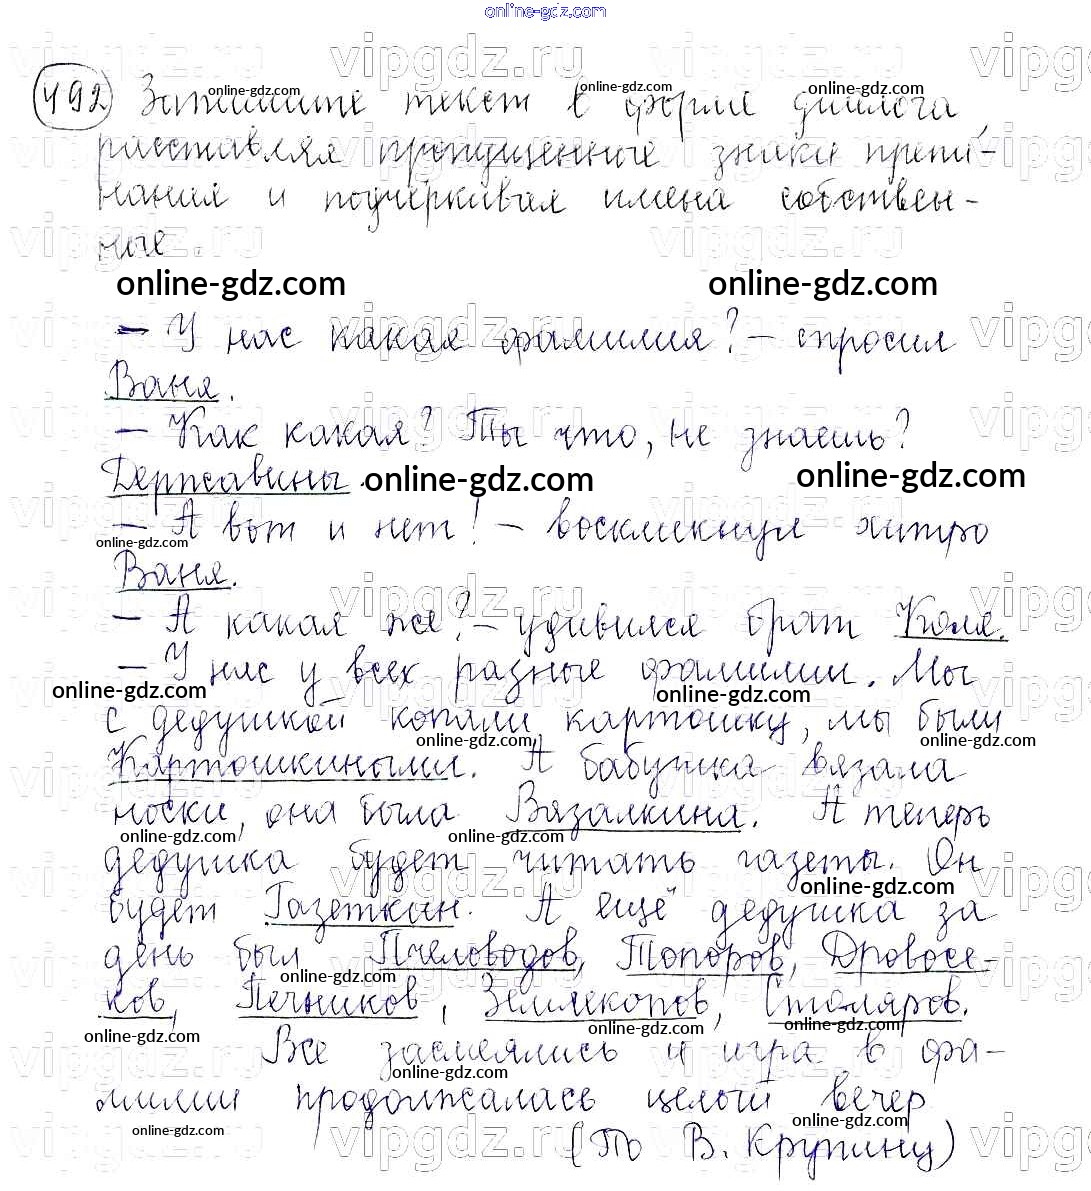 online-gdz.com
492 Запишите текст в форме диалога,
расставляя пропущенные знаки препи-
нания и подчёркивая имена собствен-
ные.
online-gdz.com online-gdz.com
– У нас какая фамилия? – спросил
Ваня.
– Как какая? Ты что, не знаешь?
Державины. online-gdz.com online-gdz.com
– А вот и нет! – воскликнул хитро
online-gdz.com
Ваня.
– А какая же? – удивился брат Коля.
– У нас у всех разные фамилии. Мы
online-gdz.com online-gdz.com
с дедушкой копали картошку, мы были
online-gdz.com online-gdz.com
Картошкиными. А бабушка вязала
носки, она была Вязалкина. А теперь
online-gdz.com online-gdz.com
дедушка будет читать газеты. Он
online-gdz.com
будет Газеткин. А ещё дедушка за
день был Пчеловодов, Топоров, Дровосе-
online-gdz.com
ков, Печников, Землекопов, Столяров.
online-gdz.com online-gdz.com online-gdz.com
Все засмеялись и игра в фа-
online-gdz.com
милии продолжалась целый вечер
online-gdz.com online-gdz.com
(По В. Крупину)
vipgdz.ru